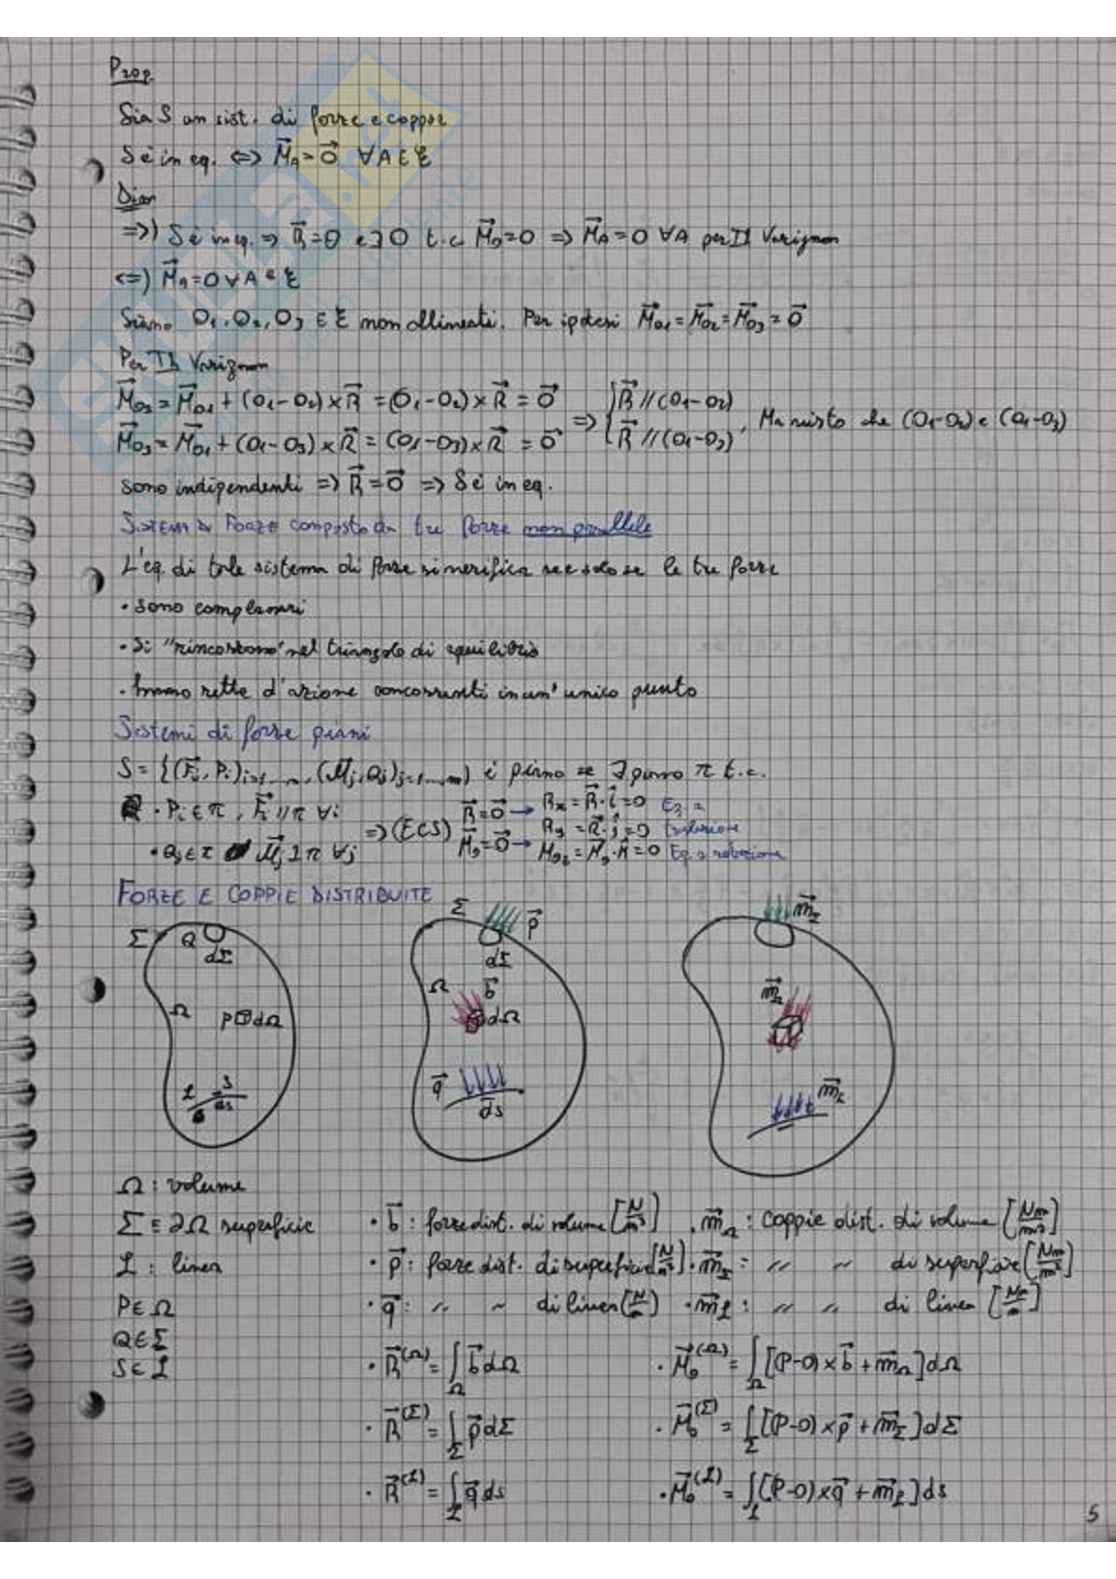 Prop
Sia S un sist. di forze e coppie
S è in eq. <=> M⃗_A = 0⃗ ∀A∈ℰ
Dim
=>) S è in eq. => R⃗=0 e ∃O t.c. M⃗_O=0 => M⃗_A=0 ∀A per Th Varignon
<=) M⃗_A=0 ∀A∈ℰ
Siano O₁, O₂, O₃ ∈ ℰ non allineati. Per ipotesi M⃗_O1 = M⃗_O2 = M⃗_O3 = 0⃗
Per Th Varignon
M⃗_O2 = M⃗_O1 + (O₁-O₂) × R⃗ = (O₁-O₂) × R⃗ = 0⃗
M⃗_O3 = M⃗_O1 + (O₁-O₃) × R⃗ = (O₁-O₃) × R⃗ = 0⃗
=> { R⃗ // (O₁-O₂)
R⃗ // (O₁-O₃) , Ma visto che (O₁-O₂) e (O₁-O₃)
sono indipendenti => R⃗=0⃗ => S è in eq.
Sistema di Forze composto da tre forze non parallele
L'eq. di tale sistema di forze si verifica se e solo se le tre forze
• sono complanari
• Si "rincorrono" nel triangolo di equilibrio
• hanno rette d'azione concorrenti in un'unico punto
Sistemi di forze piani
S = {(F⃗i, Pi)i=1...n, (M⃗j, Qj)j=1...m) è piano se ∃ piano π t.c.
• Pi∈π, F⃗i // π ∀i
• Qj∈π M⃗j ⊥ π ∀j
=> (ECS)
R⃗=0⃗ → Rx = R⃗·i⃗ = 0 Eq. a
Ry = R⃗·j⃗ = 0 traslazione
M⃗_O=0⃗ → M_Oz = M⃗_O·k⃗ = 0 Eq. a rotazione
FORZE E COPPIE DISTRIBUITE
Σ Q dΣ
Ω P dΩ
ℒ S ds
Σ p⃗ dΣ
Ω b⃗ dΩ
q⃗ ds
m⃗_Σ
m⃗_Ω
m⃗_ℒ
Ω : volume
Σ ≡ ∂Ω superficie
ℒ : linea
P∈Ω
Q∈Σ
S∈ℒ
• b⃗ : forze dist. di volume [N/m³] • m⃗_Ω : coppie dist. di volume [Nm/m³]
• p⃗ : forze dist. di superficie [N/m²] • m⃗_Σ : // ~ di superficie [Nm/m²]
• q⃗ : // ~ di linea [N/m] • m⃗_ℒ : // // di linea [Nm/m]
• R⃗^(Ω) = ∫_Ω b⃗ dΩ • M⃗_O^(Ω) = ∫_Ω [(P-O) × b⃗ + m⃗_Ω] dΩ
• R⃗^(Σ) = ∫_Σ p⃗ dΣ • M⃗_O^(Σ) = ∫_Σ [(P-O) × p⃗ + m⃗_Σ] dΣ
• R⃗^(ℒ) = ∫_ℒ q⃗ ds • M⃗_O^(ℒ) = ∫_ℒ [(P-O) × q⃗ + m⃗_ℒ] ds
5